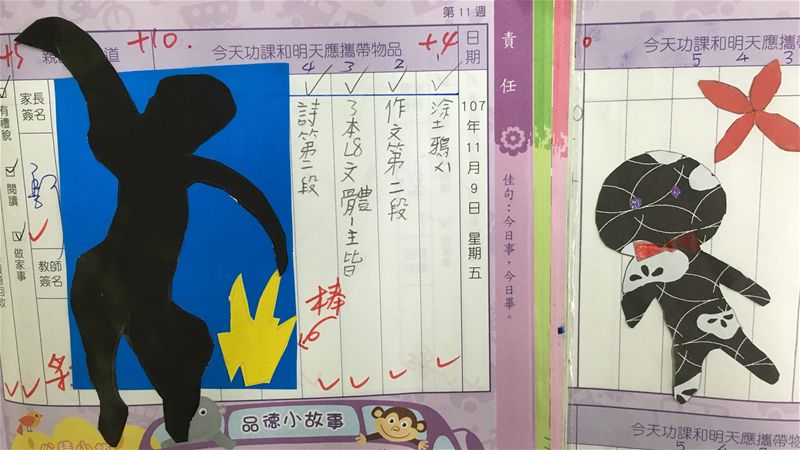 第11週
+10.
今天功課和明天應攜帶物品
+4
日期
107年11月9日 星期五
1
2
3
4
塗鴉x1
作文第二段
3本L8文體-主皆
詩第二段
棒
家長簽名
教師簽名
有禮貌
閱讀
做家事
品德小故事
責任
佳句：今日事，今日畢。
今天功課和明天應攜帶
5 4 3
今天功課和明天應攜帶